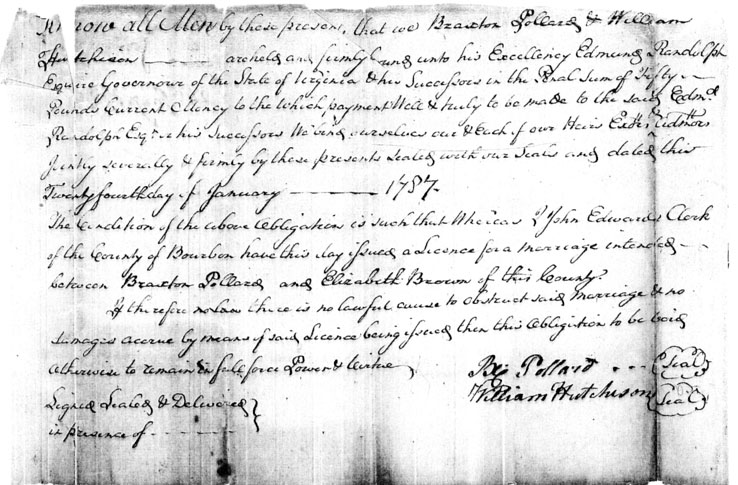 Know all Men by these presents, that we Braxton Pollard & William
Hutchison are held and firmly bound unto his Excellency Edmund Randolph
Esquire Governour of the State of Virginia & his Successors in the Penal Sum of Fifty
Pounds Current Money to the which payment Well & truly to be made to the said Edmd.
Randolph Esqre. his successors We bind ourselves our & Each of our Heirs Exrs. Admors
Jointly severally & firmly by these presents Sealed with our Seals and dated this
Twenty fourth day of January 1787.
The Condition of the above Obligation is such that Whereas I John Edwards Clerk
of the County of Bourbon have this day issued a Licence for a Marriage intended
between Braxton Pollard and Elizabeth Brown of this County.
If therefore no Law there is no lawful cause to obstruct said Marriage & no
damages accrue by means of said Licence being issued then this Obligation to be void
Otherwise to remain in full force Power & Virtue
Pollard Seal
William Hutchison Seal
Signed Sealed & Delivered
in presence of